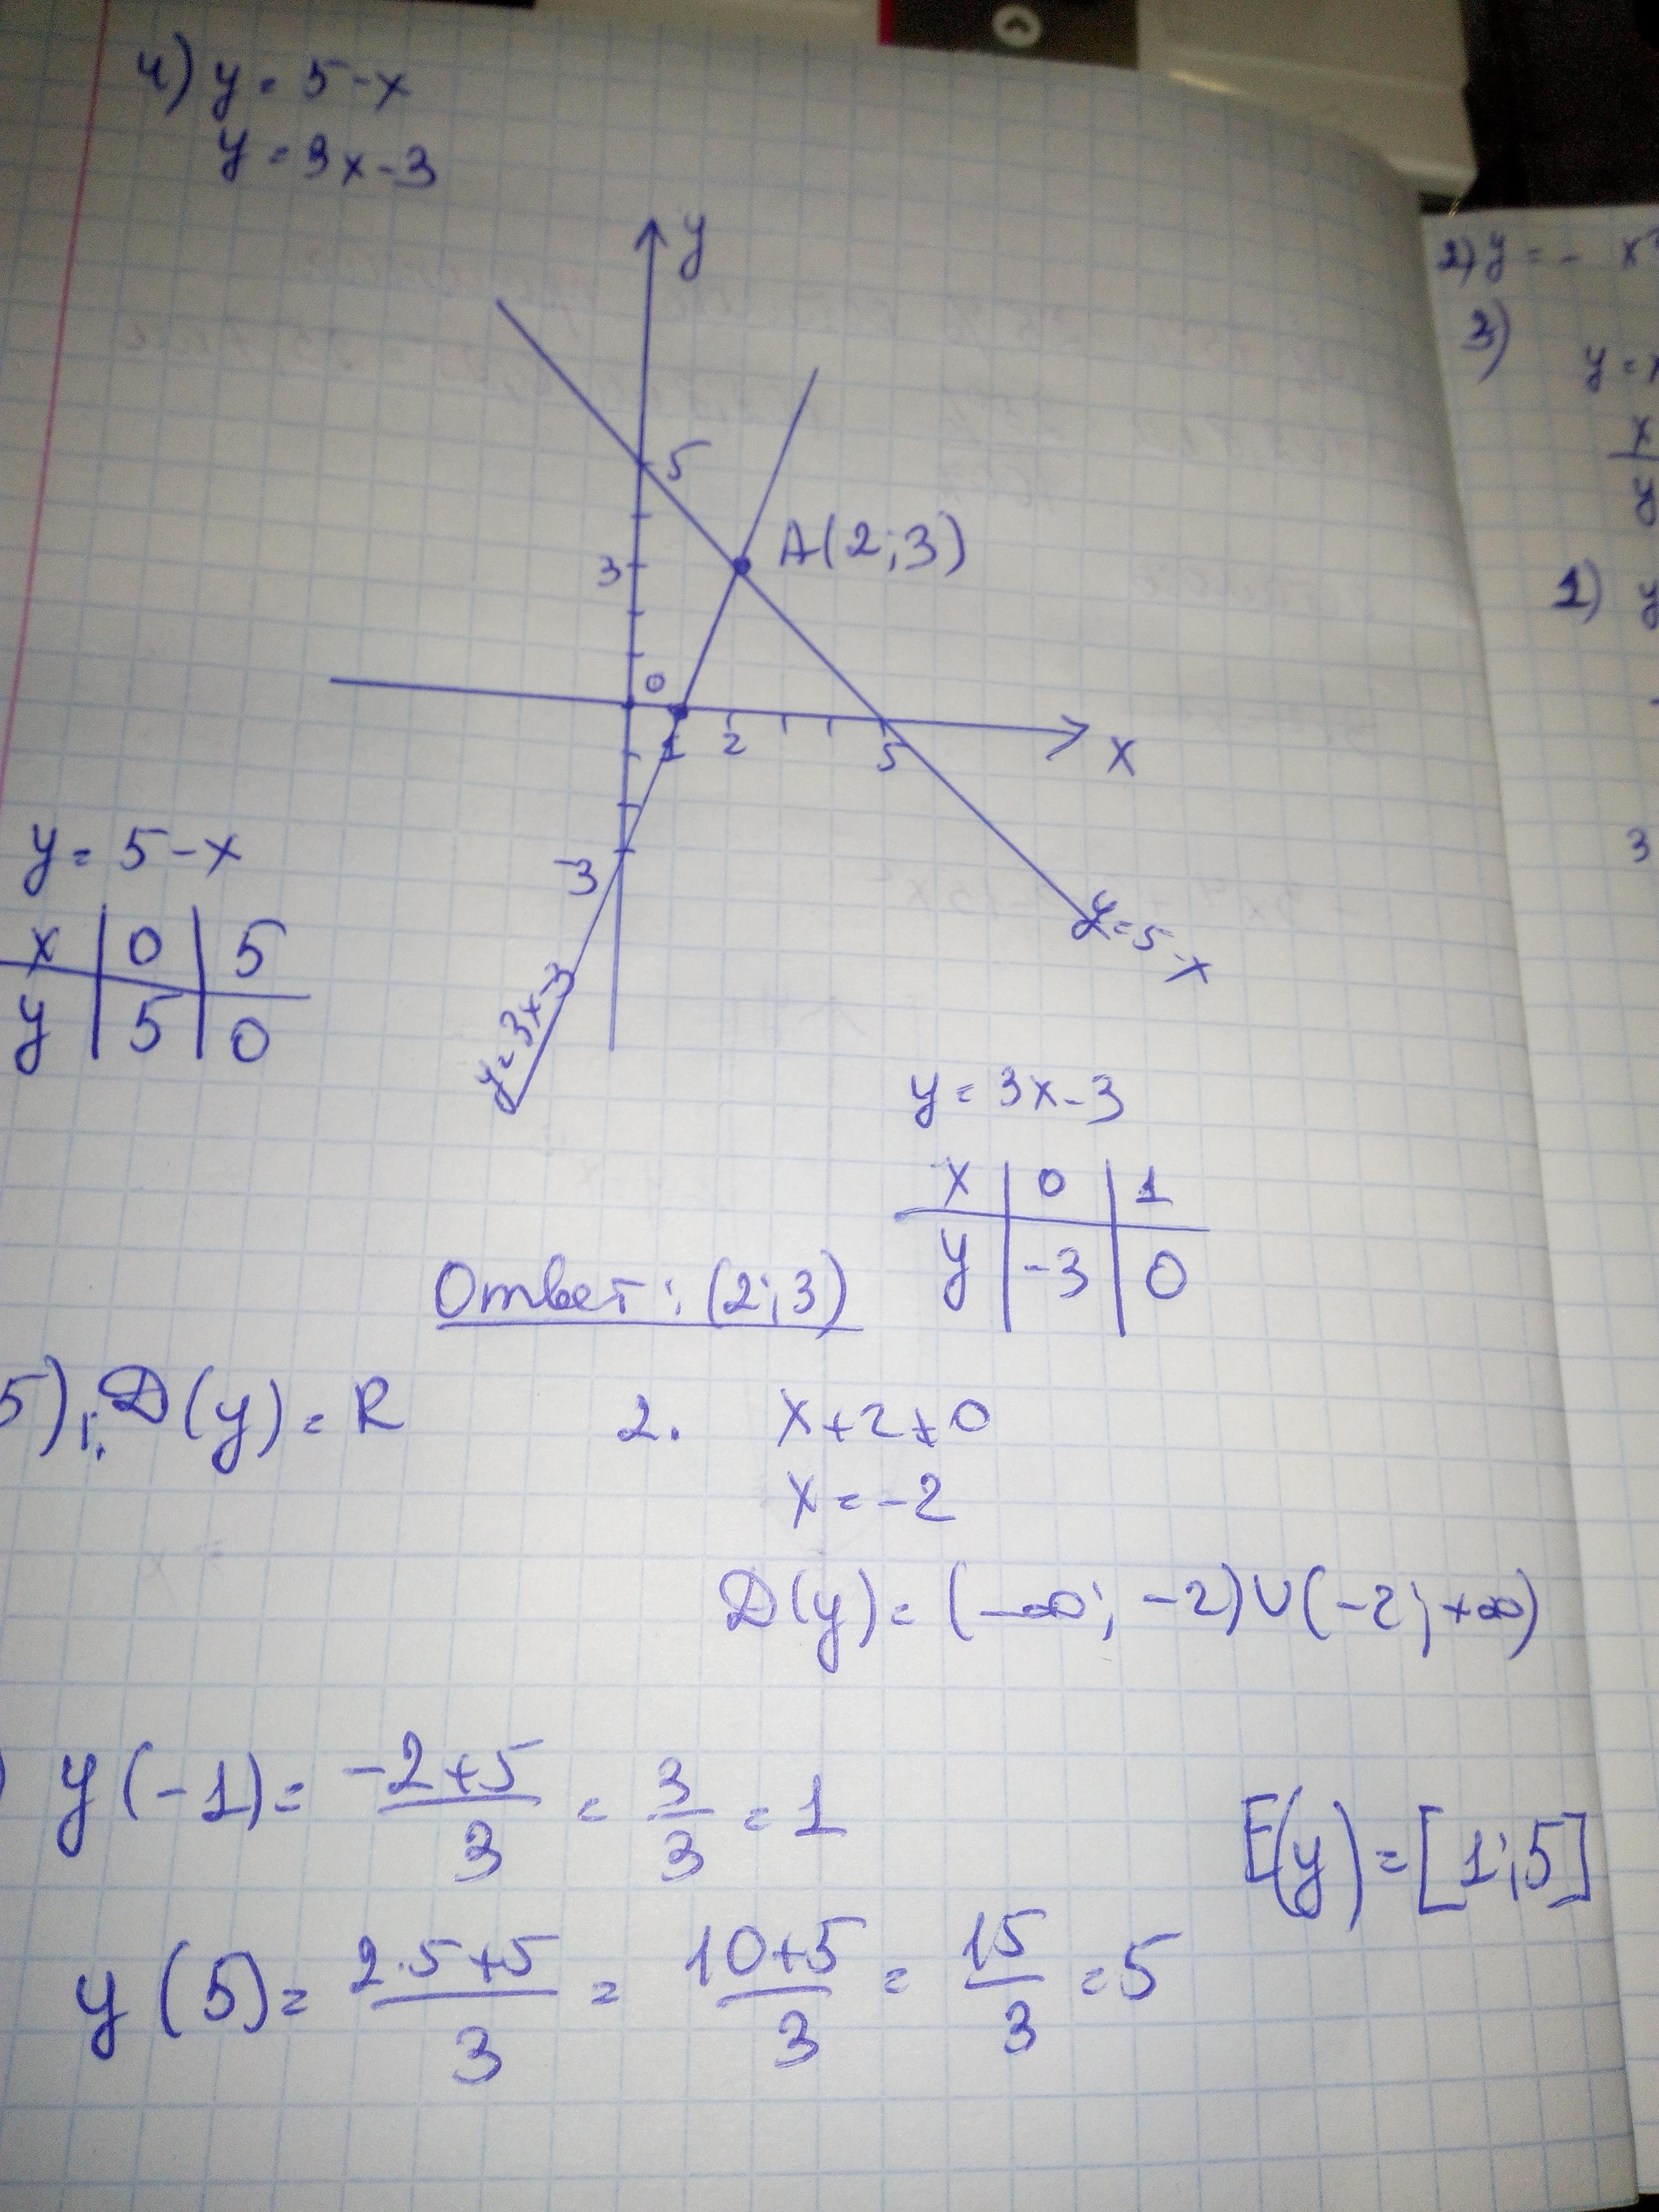 4) y = 5-x
y = 3x-3
y
5
A(2;3)
3
0
1 2 5 x
-3
y=5-x
y=3x-3
y = 5-x
x | 0 | 5
y | 5 | 0
y = 3x-3
x | 0 | 1
y | -3 | 0
Ответ: (2;3)
5) 1. D(y) = R
2. x+2≠0
x = -2
D(y) = (-∞; -2)∪(-2; +∞)
) y(-1) = \frac{-2+5}{3} = \frac{3}{3} = 1
E(y) = [1;5]
y(5) = \frac{2·5+5}{3} = \frac{10+5}{3} = \frac{15}{3} = 5
2) y = - x²
3)
y = x
x
y
1) y
3